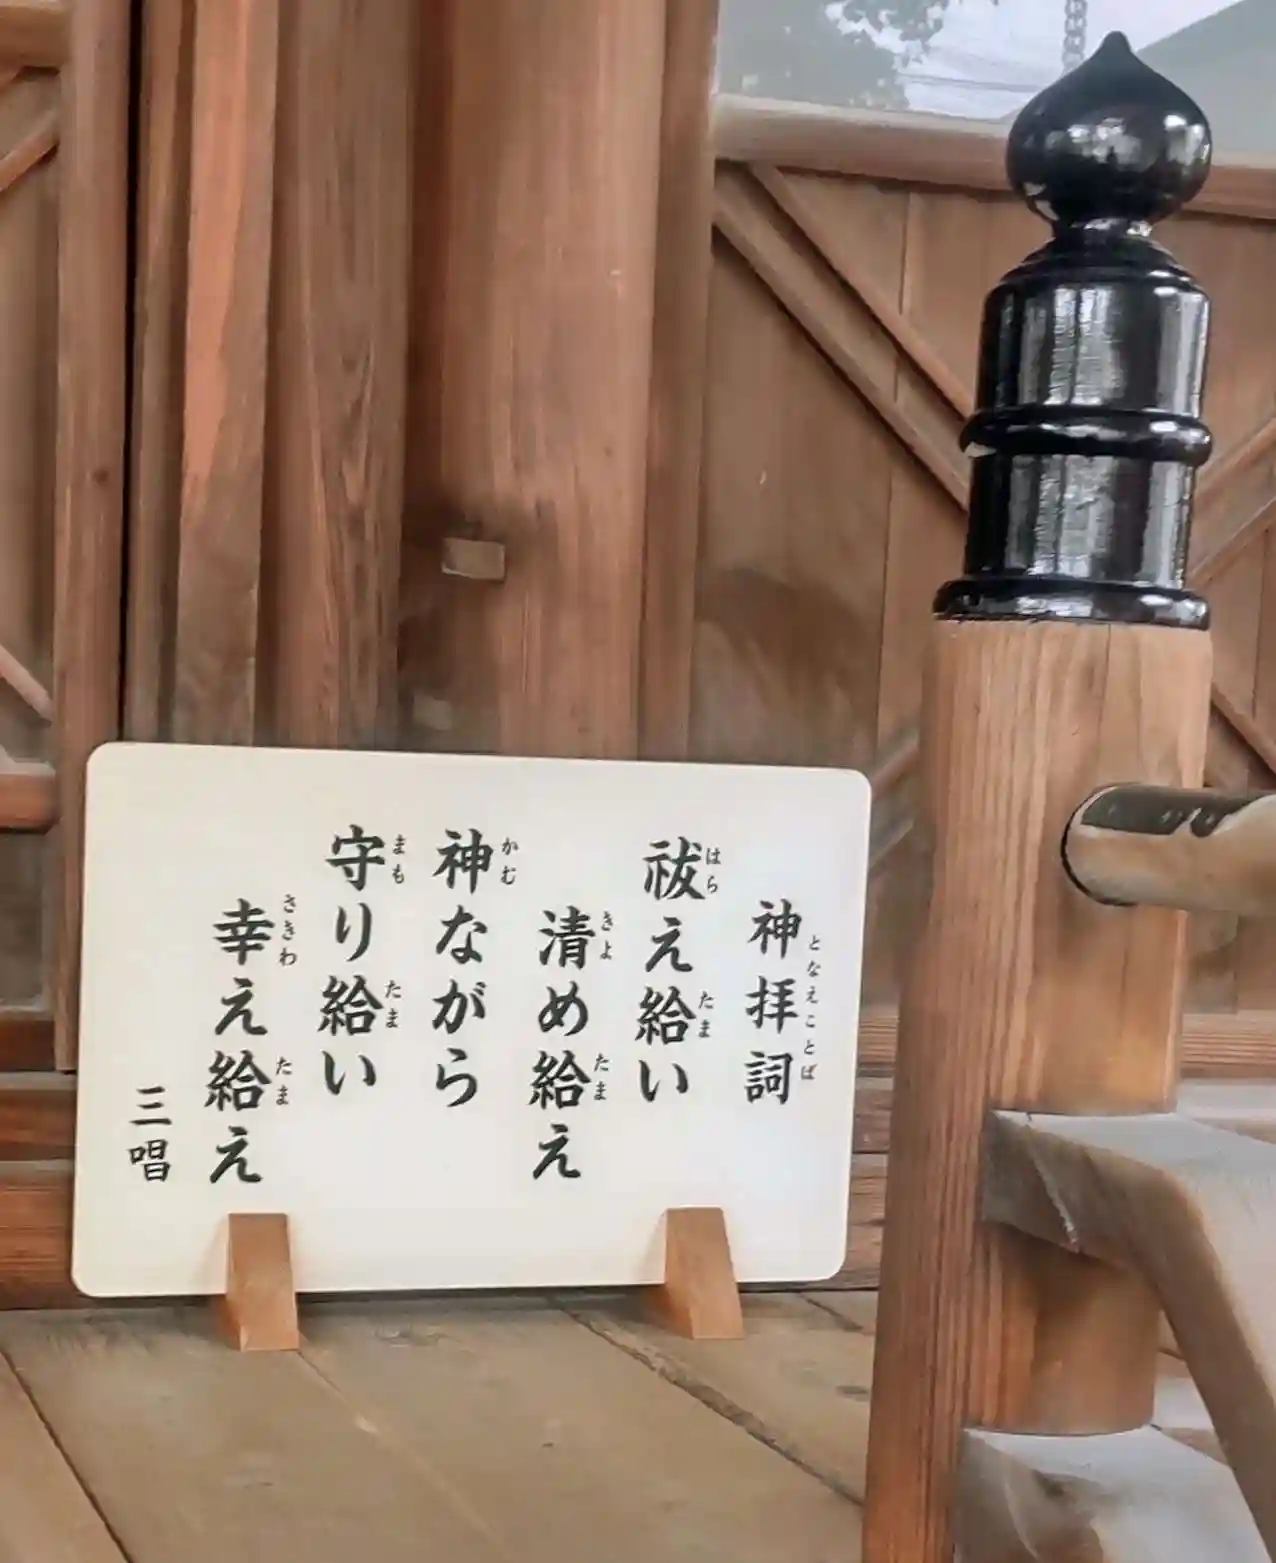 神拝詞
となえことば
祓え給い
はら
たま
清め給え
きよ
たま
神ながら
かむ
守り給い
まも
たま
幸え給え
さきわ
たま
三唱